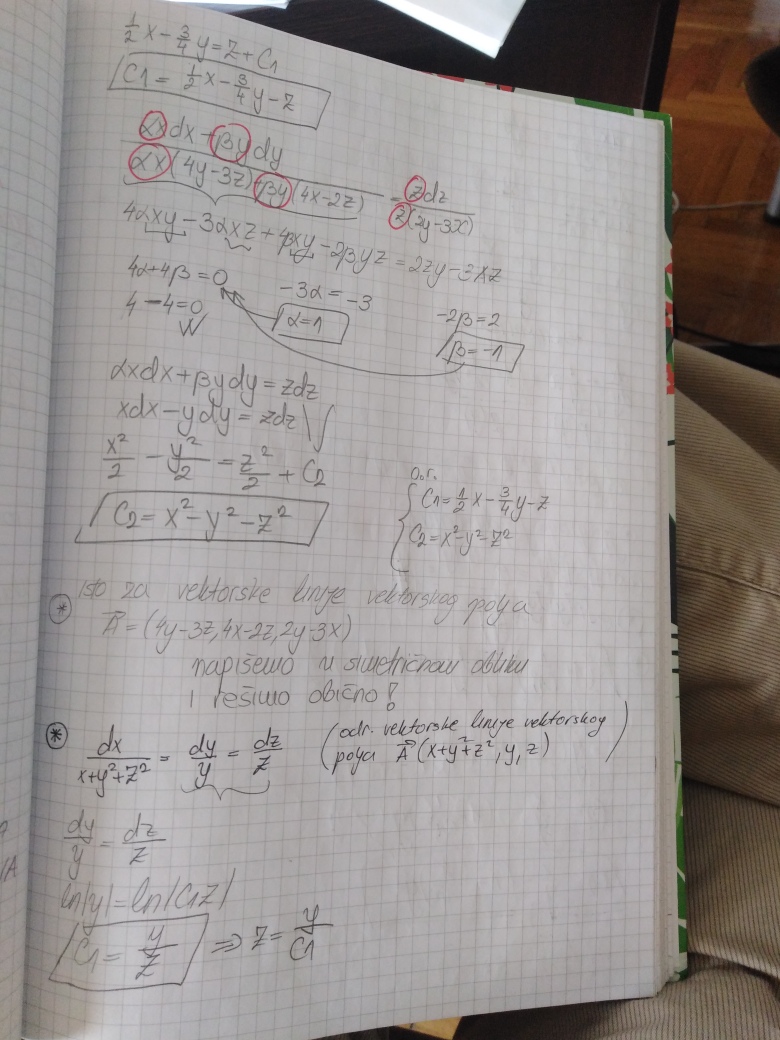 ½x - ¾y = z + C1
C1 = ½x - ¾y - z
αxdx + βydy / αx(4y-3z) + βy(4x-2z) = zdz / z(2y-3x)
4αxy - 3αxz + 4βxy - 2βyz = 2zy - 3xz
4α+4β=0
-3α = -3
-2β = 2
4-4=0
α=1
β=-1
αxdx + βydy = zdz
xdx - ydy = zdz \∫
x²/2 - y²/2 = z²/2 + C2
C2 = x² - y² - z²
O.r.
C1 = ½x - ¾y - z
C2 = x² - y² - z²
* Isto za vektorske linije vektorskog polja
A⃗ = (4y-3z, 4x-2z, 2y-3x)
napišemo u simetričnom obliku
i rešimo obično!
* dx/x+y²+z² = dy/y = dz/z
(odr. vektorske linije vektorskog
polja A⃗ (x+y²+z², y, z))
dy/y = dz/z
ln|y| = ln|C1z|
C1 = y/z ⇒ z = y/C1